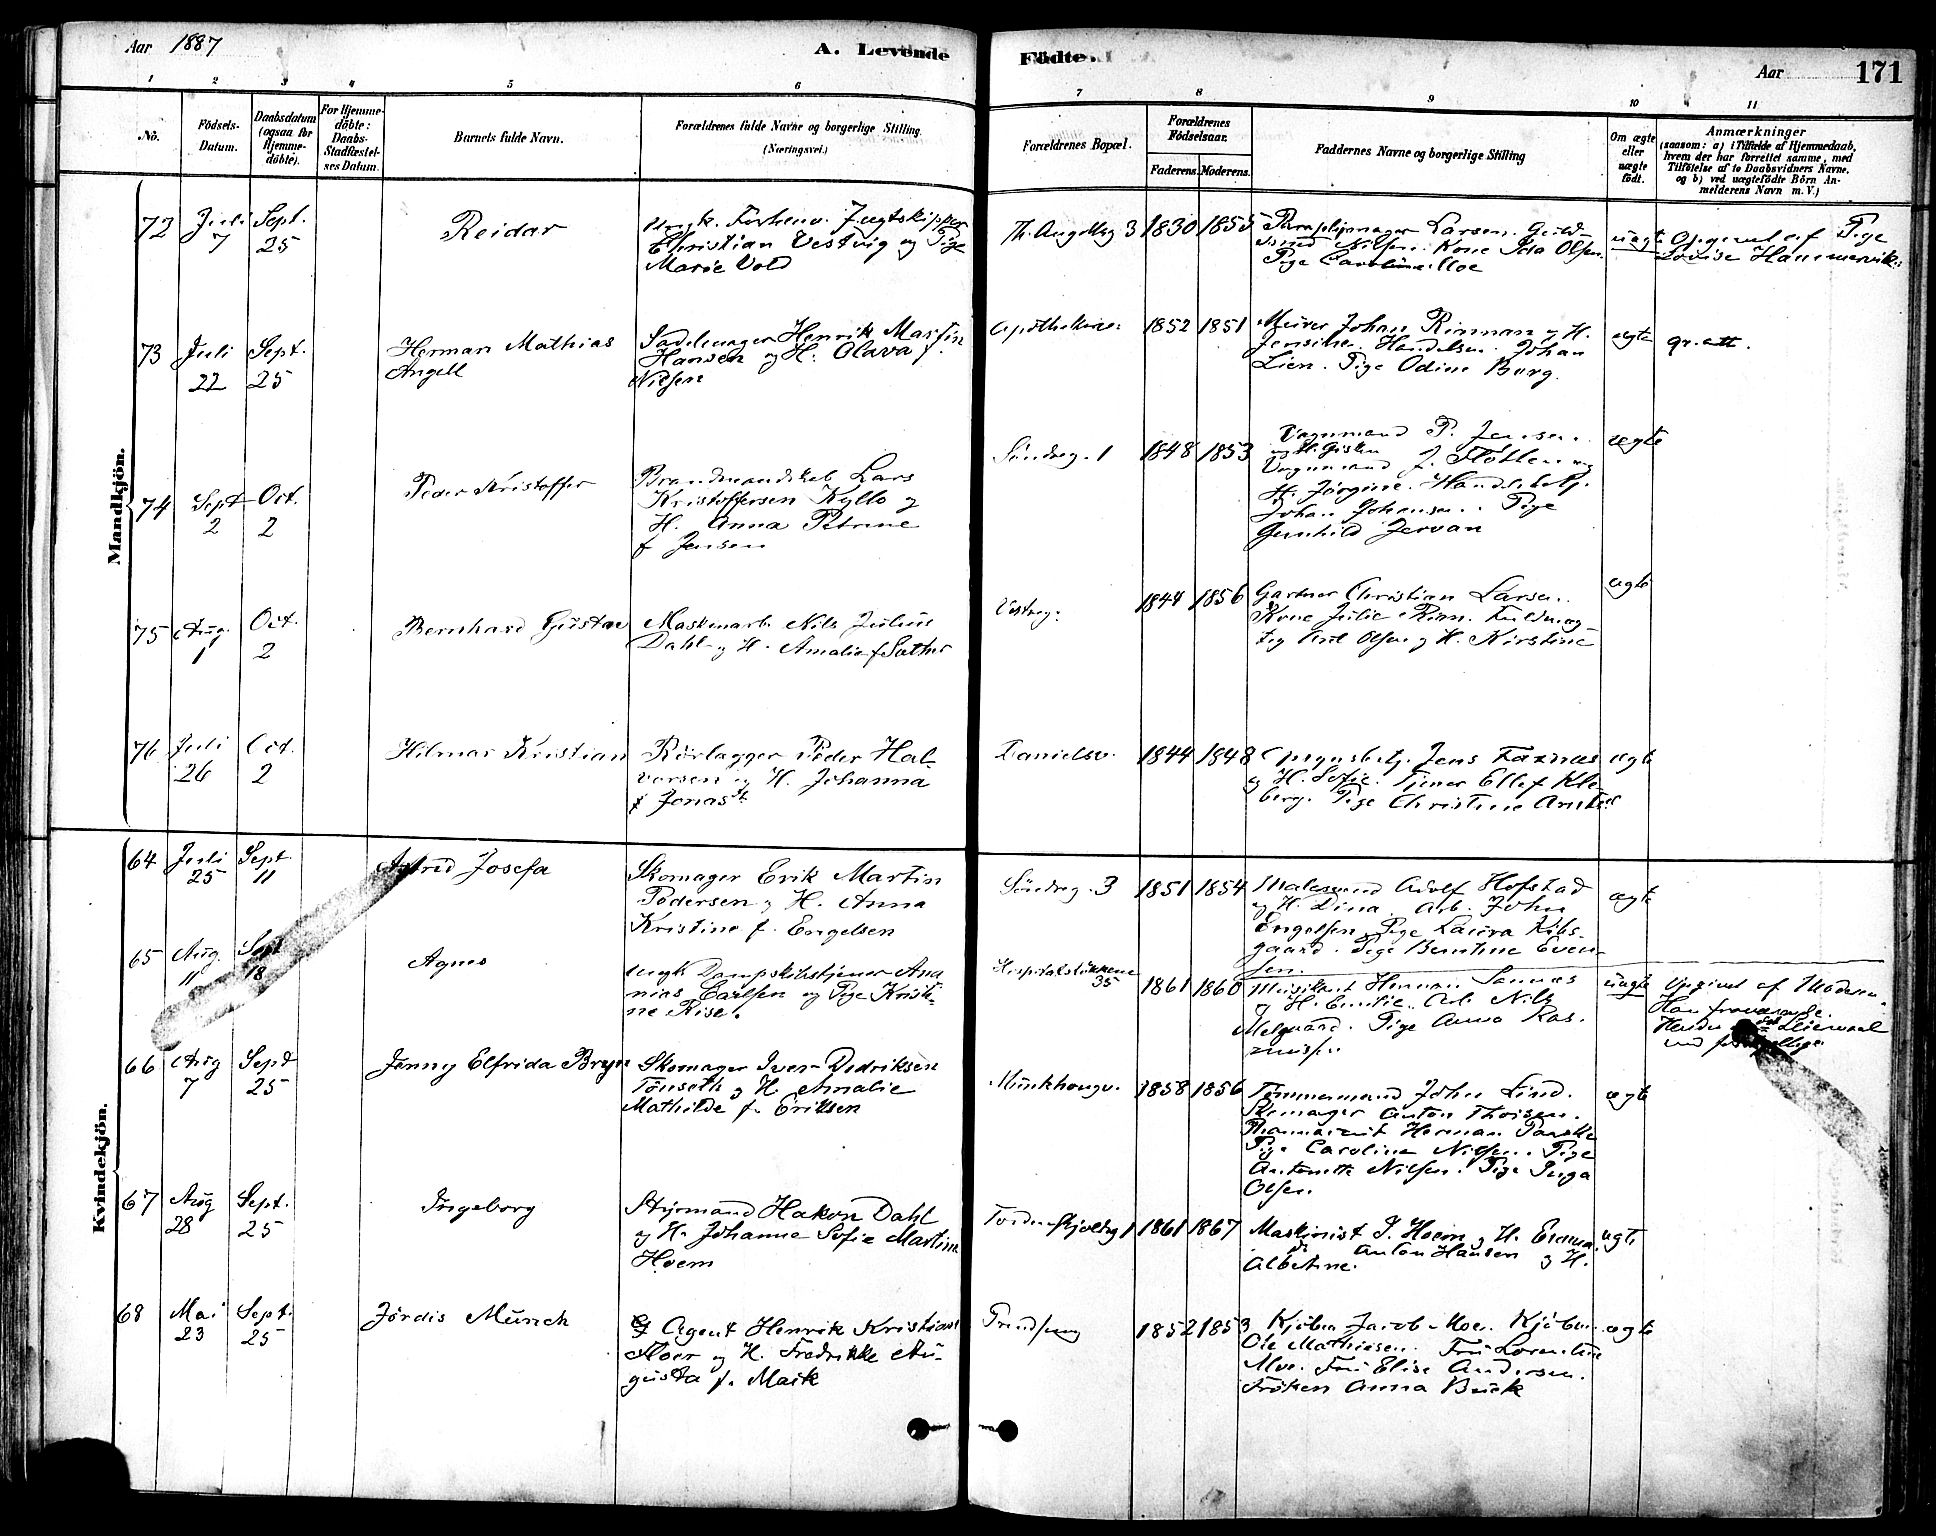 Aar 1887
A. Levende
Födte.
Aar
171
1
2
3
4
5
6
7
8
9
10
11
No.
Födsels-
Datum.
Daabsdatum
(ogsaa for
Hjemme-
döbte).
For Hjemme-
döbte:
Daabs-
Stadfæstel-
ses Datum.
Barnets fulde Navn.
Forældrenes fulde Navne og borgerlige Stilling.
(Næringsvei.)
Forældrenes Bopæl.
Forældrenes
Födselsaar.
Faderens.
Moderens.
Faddernes Navne og borgerlige Stilling
Om ægte
eller
uægte
födt.
Anmærkninger
(saasom: a) i Tilfælde af Hjemmedaab,
hvem der har forrettet samme, med
Tilföielse af to Daabsvidners Navne.
og b) ved uægtefödte Börn An-
melderens Navn m. V.)
Mandkjön.
72
Juli
7
Sept.
25
Reidar
Ungk. Forhenv. Jagtskipper
Christian Vestvig og Pige
Marie Vold
Th. Angellsg 3
1830
1855
Paraplymager Larsen.
Nilsen. Kone Ida Olsen.
Pige Caroline Moe
uægte
Opgivet af Pige
Lovise Hammervik.
73
Juli
22
Sept.
25
Herman Mathias
Angell
Sadelmager Henrik Martin
Hansen og H. Olava f.
Nilsen
Apothekerv.
1852
1851
Murer Johan Rinnan og H.
Jensine. Johan
Lien. Pige Odine Borg.
ægte
gr. att.
74
Sept
2
Oct.
2
Peder Kristoffer
Brandmandskab Lars
Kristoffersen Kyllo og
H. Anna Petrine
f Jensen
Söndreg. 1
1848
1853
Vognmand P. Jensen.
og H. Gisken
Vognmand J. Flötten og
H. Jörgine. Handelsbetj.
Johan Johansen. Pige
Gunhild Jervan
ægte
75
Aug.
1
Oct.
2
Bernhard Gustav
Maskinarb. Nils Julius
Dahl og H. Amalie f Sæther
Vestreg.
1844
1856
Gartner Christian Larsen.
Kone Julie Rian. Fuldmæg-
tig Olsen og H. Kirstine
ægte
76
Juli
26
Oct.
2
Hilmar Kristian
Rörlægger Peder Hal-
vorsen og H. Johanna
f Jonasdt.
Danielsv.
1844
1848
Jens Faxnes
og H. Sofie. Tjener Ellef Kle-
berg. Pige Christine
ægte
Kvindekjön.
64
Juli
25
Sept
11
Astrid Josefa
Skomager Erik Martin
Pedersen og H. Anna
Kristine f. Engelsen
Söndreg. 3
1851
1854
Malersvend Adolf Hofstad
og H. Dina. Arb. John
Engelsen. Pige Laura Kibs-
gaard. Pige Berntine Even-
sen.
ægte
65
Aug
11
Sept
18
Agnes
Ungk Dampskibstjener Ana-
nias Carlsen og Pige Kristi-
ne Rise.
Hospitalslökkene
35
1861
1860
Musikant Herman Sannes
og H. Emilie. Arb. Nils
Melgaard. Pige Anna Ras-
mussen
uægte
Opgivet af Moderen.
Han fraværende.
Hendes 2det Leiermaal
med forskjellige
66
Aug
7
Sept
25
Jenny Elfrida Bryn
Skomager Iver Dedriksen
Tönseth og H. Amalie
Mathilde f. Eriksen
Munkhaugv.
1858
1856
Tömmermand John Lind.
Remager Anton Thoisen.
Herman Panske
Pige Caroline Nilsen. Pige
Antonette Nilsen. Pige Inga
Olsen.
ægte
67
Aug
28
Sept.
25
Ingeborg
Styrmand Hakon Dahl
og H. Johanne Sofie Martine
Hoem
Tordenskjoldsg 1
1861
1867
Maskinist P. Hoem og H. Emma.
do Anton Hansen og H.
Albertine.
ægte
68
Mai
23
Sept.
25
Jördis Münch
Agent Henrik Kristian
Floer og H. Fredrikke Au-
gusta f. Maik
1852
1853
Kjöbm Jacob Moe. Kjöbm.
Ole Mathiesen. Fru Lorentine
Moe. Fru Elise Andersen.
Fröken Anna Buck
ægte